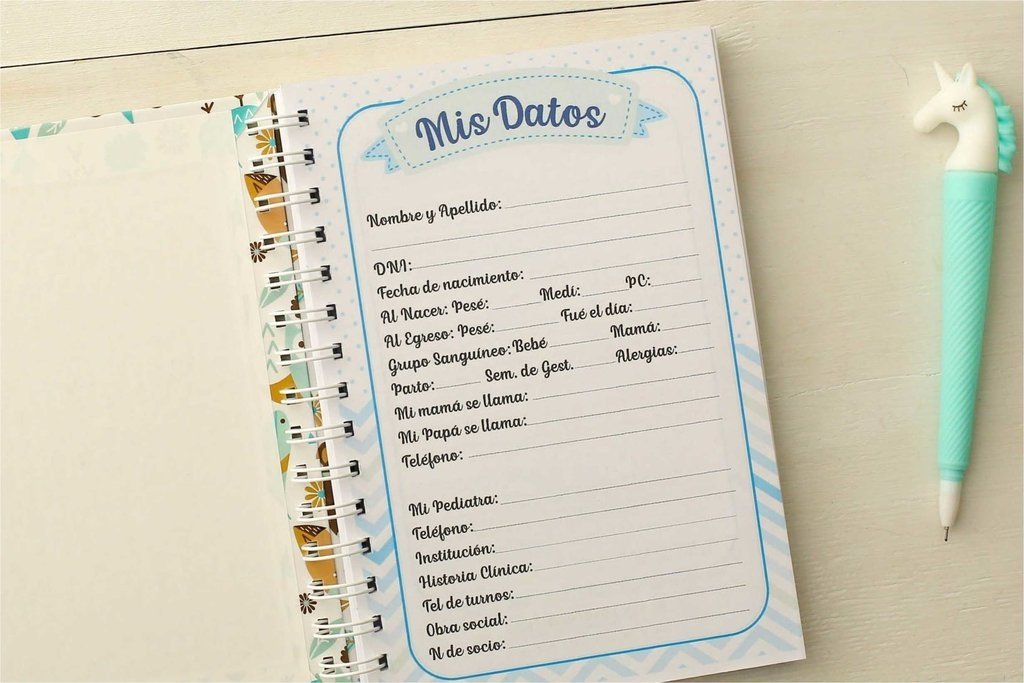 Mis Datos
Nombre y Apellido:
DNI:
Fecha de nacimiento:
Al Nacer: Pesé: Medí: PC:
Al Egreso: Pesé: Fué el día:
Grupo Sanguíneo: Bebé Mamá:
Parto: Sem. de Gest. Alergias:
Mi mamá se llama:
Mi Papá se llama:
Teléfono:
Mi Pediatra:
Teléfono:
Institución:
Historia Clínica:
Tel de turnos:
Obra social:
N de socio: